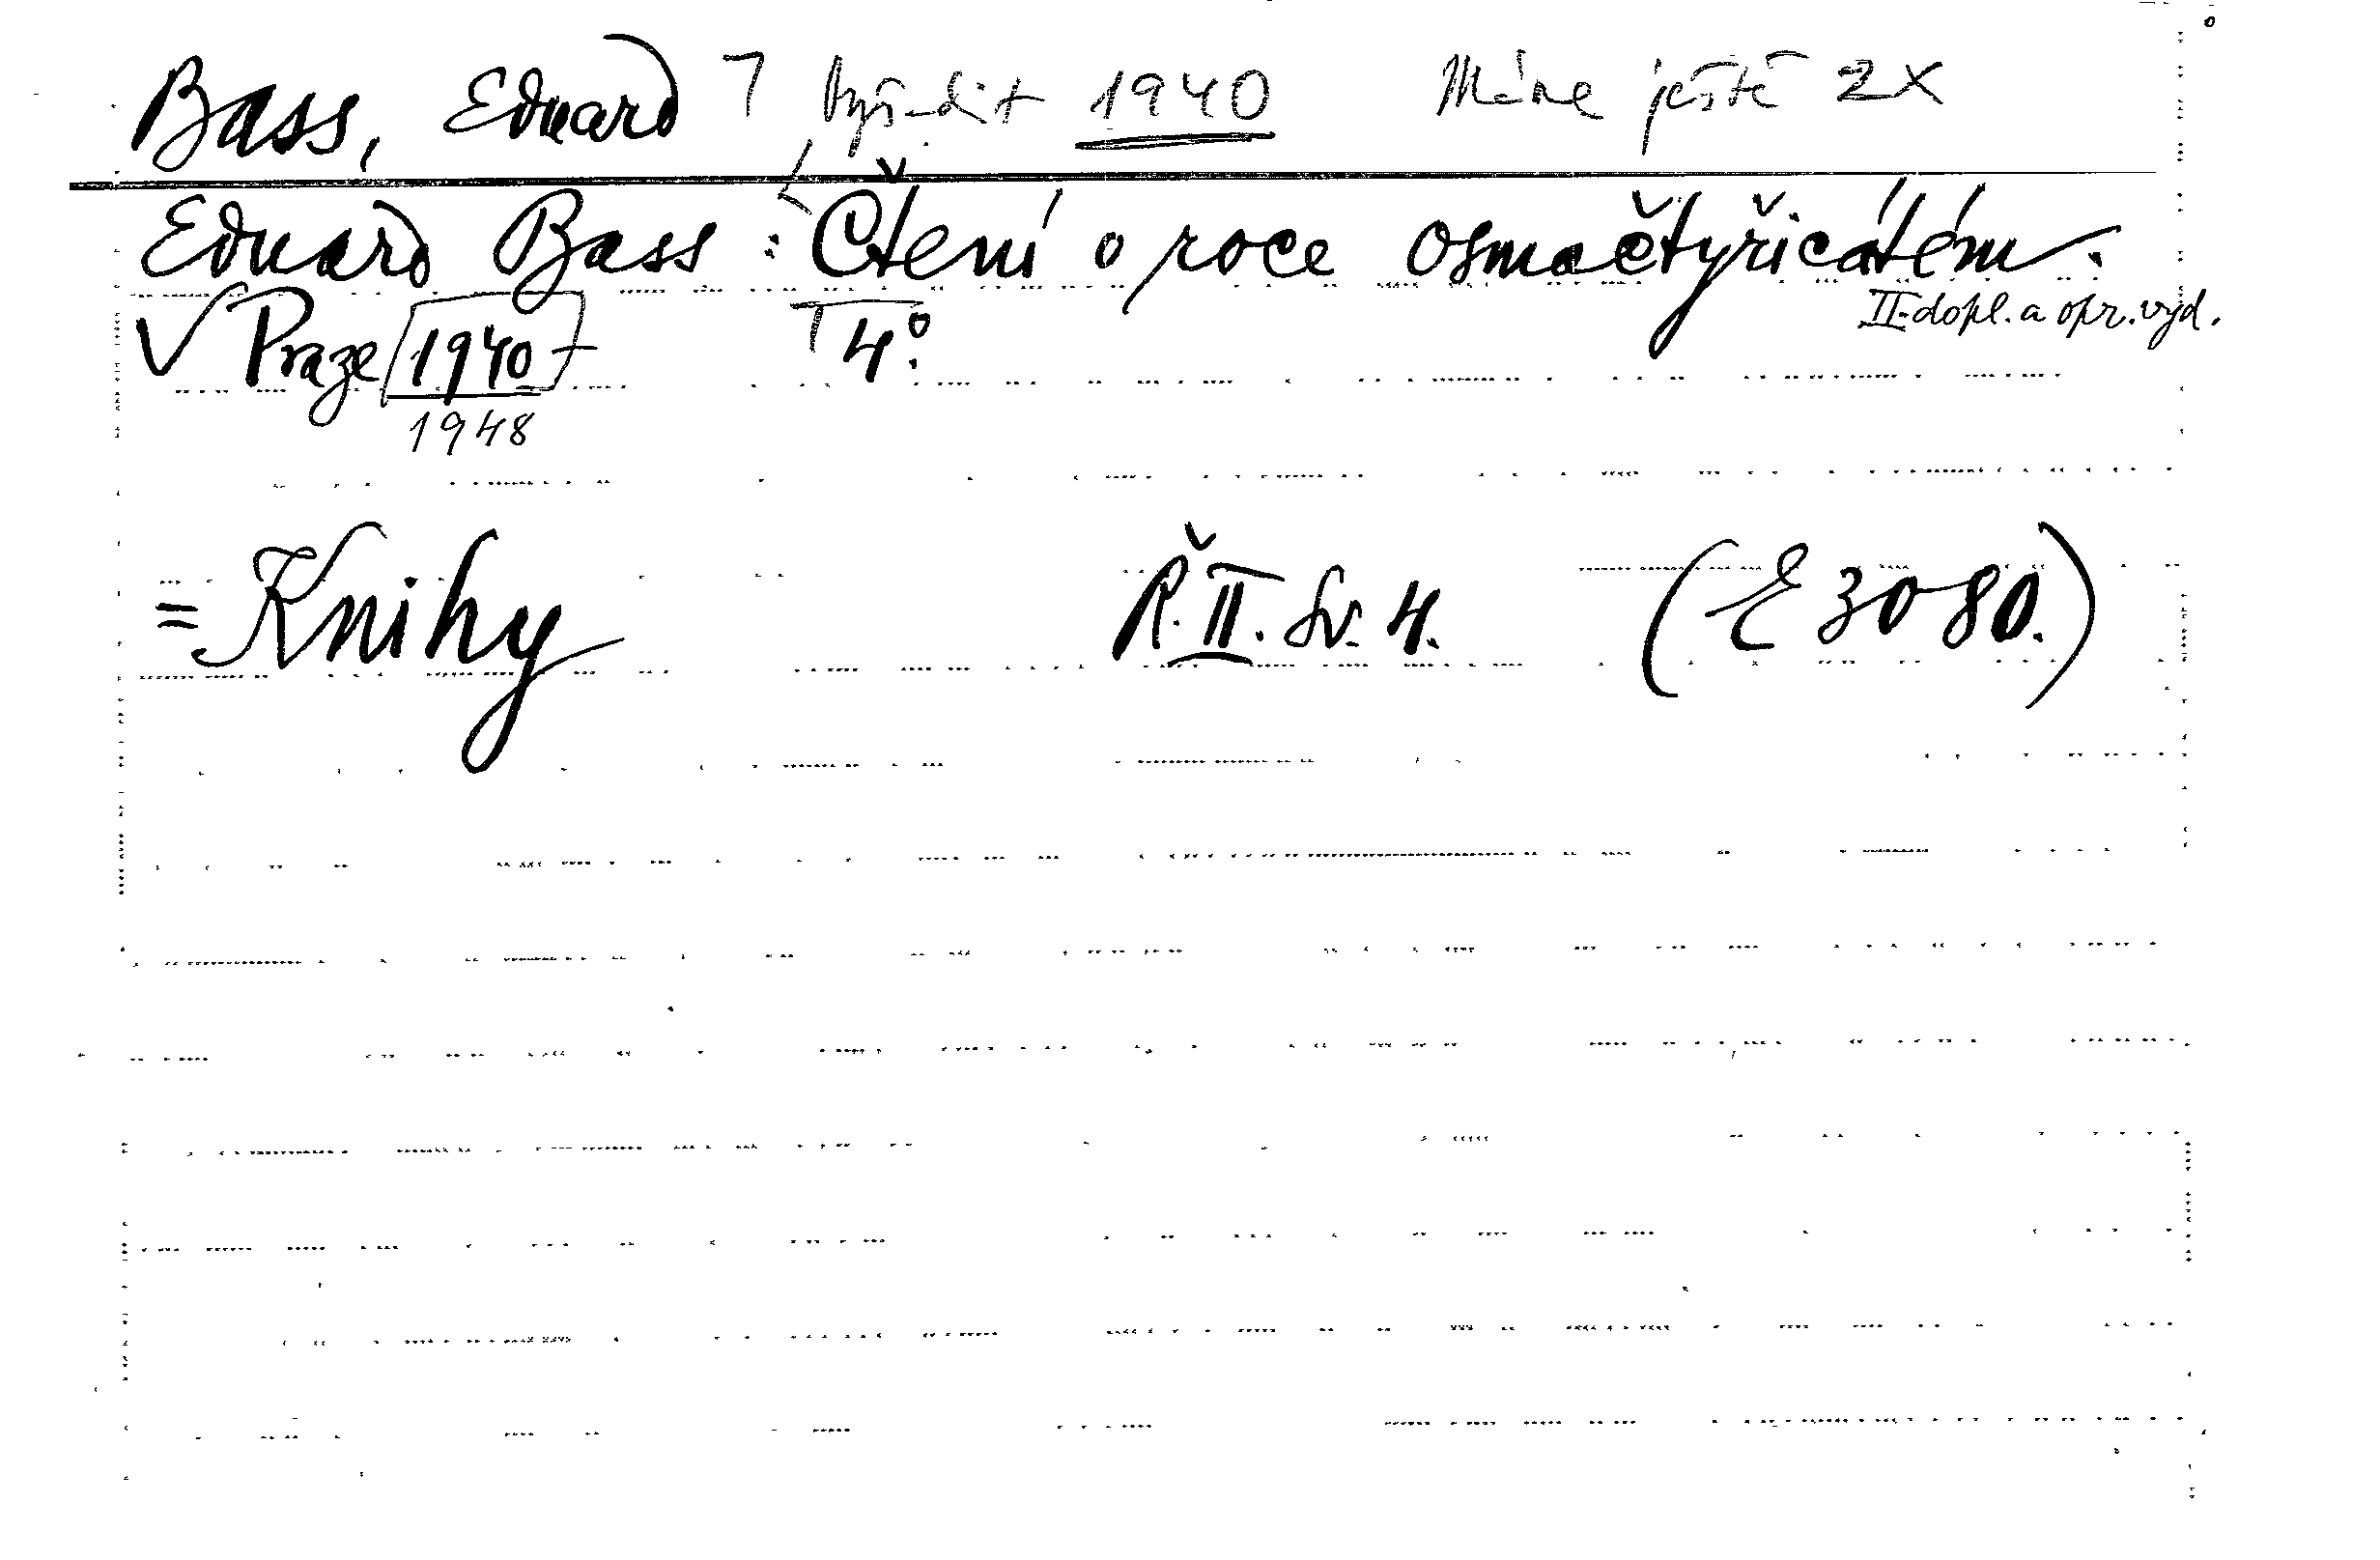 Bass, Eduard 1940 Máme ještě 2x
Eduard Bass: Čtení o roce osmačtyřicátém.
II. dopl. a opr. vyd.
V Praze 1940 4°.
1948
= Knihy Ř. II. sv. 4. (E 3080.)